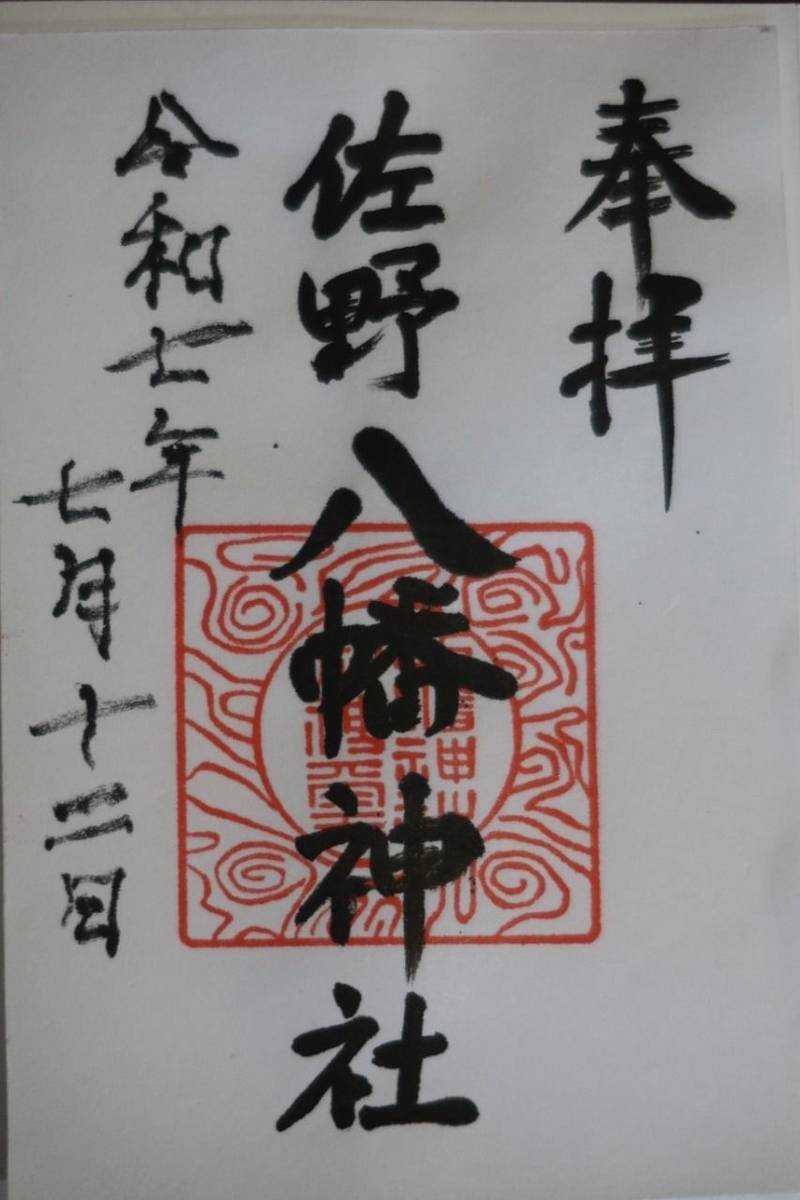 奉拝
佐野八幡神社
令和七年
七月十二日